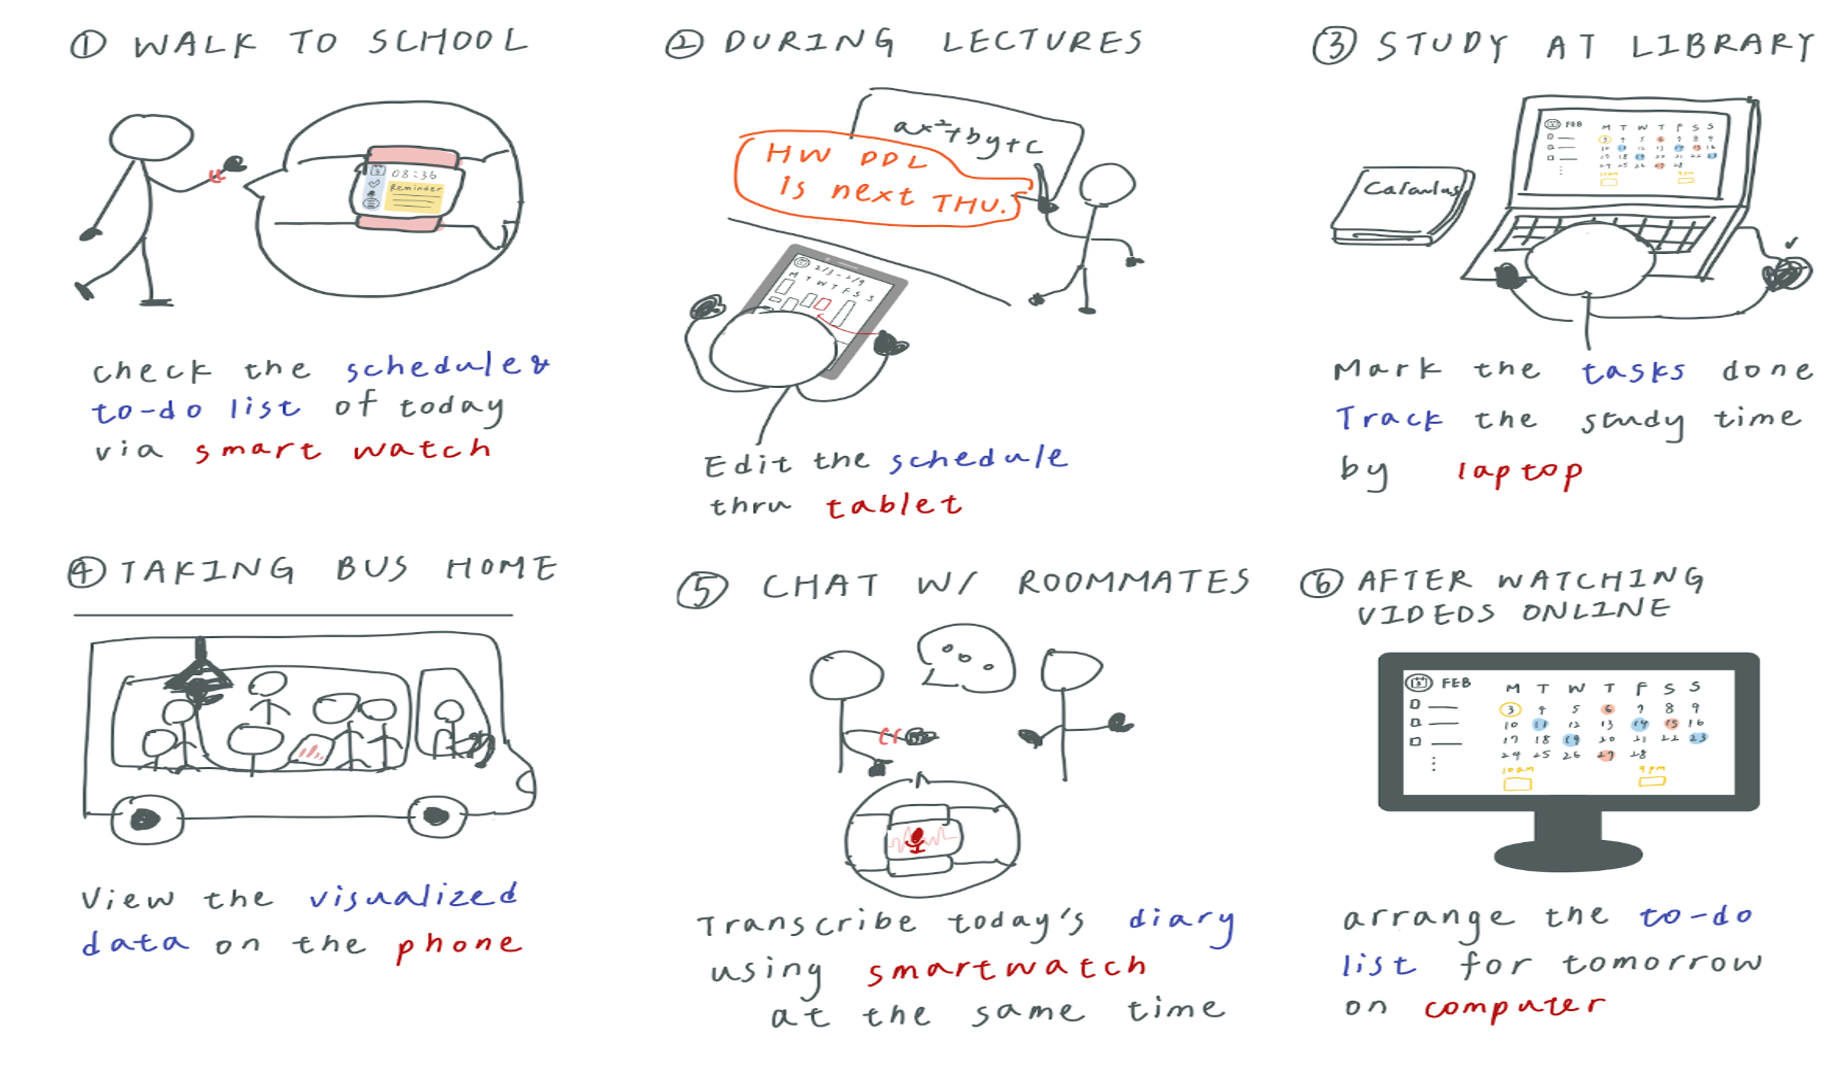 ① WALK TO SCHOOL
08:36
Reminder
check the schedule &
to-do list of today
via smart watch
② DURING LECTURES
ax²+by+c
HW DDL
is next THU.
2/3-2/9
M T W T F S S
Edit the schedule
thru tablet
③ STUDY AT LIBRARY
Calculus
FEB
M T W T F S S
Mark the tasks done
Track the study time
by laptop
④ TAKING BUS HOME
View the visualized
data on the phone
⑤ CHAT W/ ROOMMATES
Transcribe today's diary
using smartwatch
at the same time
⑥ AFTER WATCHING
VIDEOS ONLINE
FEB
M T W T F S S
3 4 5 6 7 8 9
10 11 12 13 14 15 16
17 18 19 20 21 22 23
24 25 26 27 28
10am 9pm
arrange the to-do
list for tomorrow
on computer